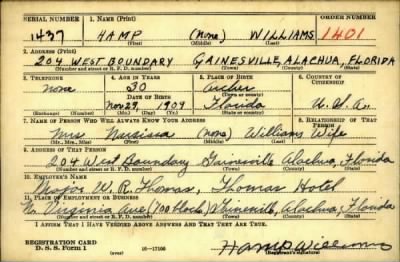 SERIAL NUMBER 1. NAME (Print) ORDER NUMBER
1437 HAMP (None) WILLIAMS 1401
(First) (Middle) (Last)
2. ADDRESS (Print)
204 WEST BOUNDARY GAINESVILLE, ALACHUA, FLORIDA
(Number and street or R. F. D. number) (Town) (County) (State)
3. TELEPHONE 4. AGE IN YEARS 5. PLACE OF BIRTH 6. COUNTRY OF CITIZENSHIP
none 30 Archer
DATE OF BIRTH (Town or county)
Nov 29, 1909 Florida U. S. A.
(Exchange) (Number) (Mo.) (Day) (Yr.) (State or country)
7. NAME OF PERSON WHO WILL ALWAYS KNOW YOUR ADDRESS 8. RELATIONSHIP OF THAT PERSON
Mrs Narsissa (None) Williams Wife
(Mr., Mrs., Miss) (First) (Middle) (Last)
9. ADDRESS OF THAT PERSON
204 West Boundary Gainesville Alachua, Florida
(Number and street or R. F. D. number) (Town) (County) (State)
10. EMPLOYER'S NAME
Major W. R. Thomas, Thomas Hotel
11. PLACE OF EMPLOYMENT OR BUSINESS
No. Virginia Ave (700 block) Gainesville, Alachua, Florida
(Number and street or R. F. D. number) (Town) (County) (State)
I AFFIRM THAT I HAVE VERIFIED ABOVE ANSWERS AND THAT THEY ARE TRUE.
REGISTRATION CARD
D. S. S. Form 1 (over) 16—17105 Hamp Williams
(Registrant's signature)